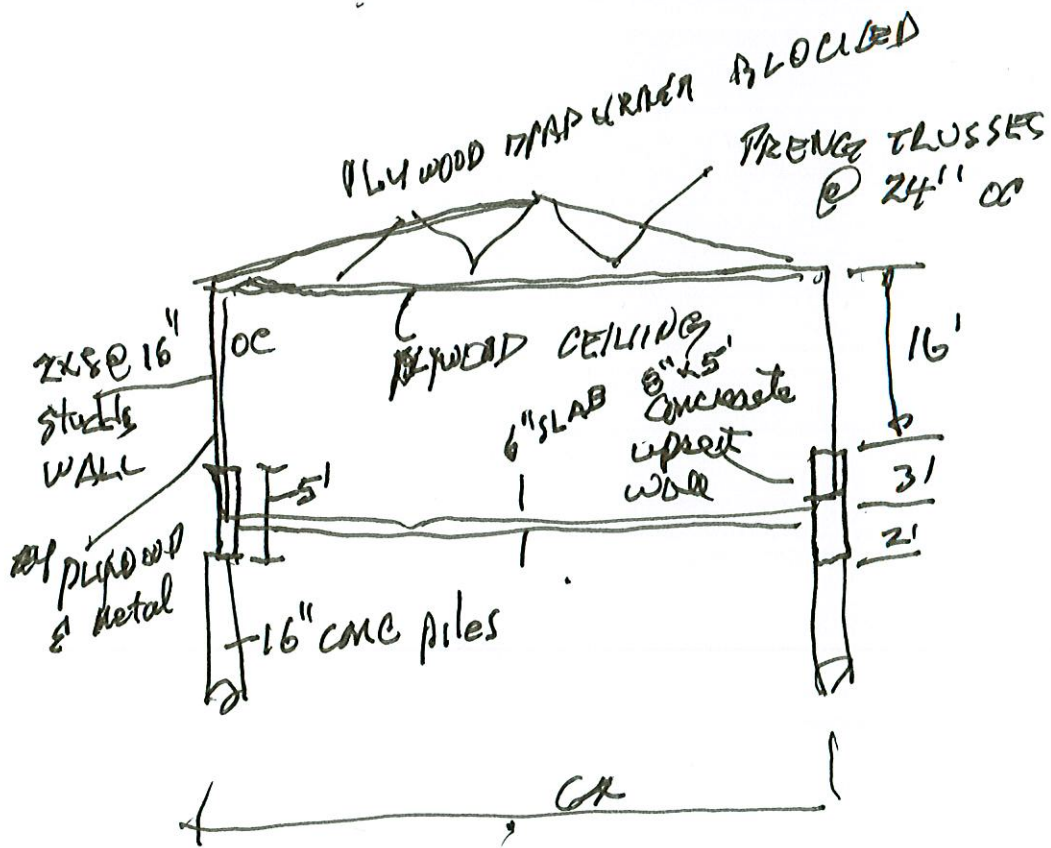 PLYWOOD DIAPHRAGM BLOCKED
PRENG TRUSSES
@ 24" OC
2x8@ 16" OC
studds
WALL
PLYWOOD CEILING
6" SLAB
8" x 5'
Concreete
upset
wall
16'
3'
2'
5'
plywood
& metal
16" conc piles